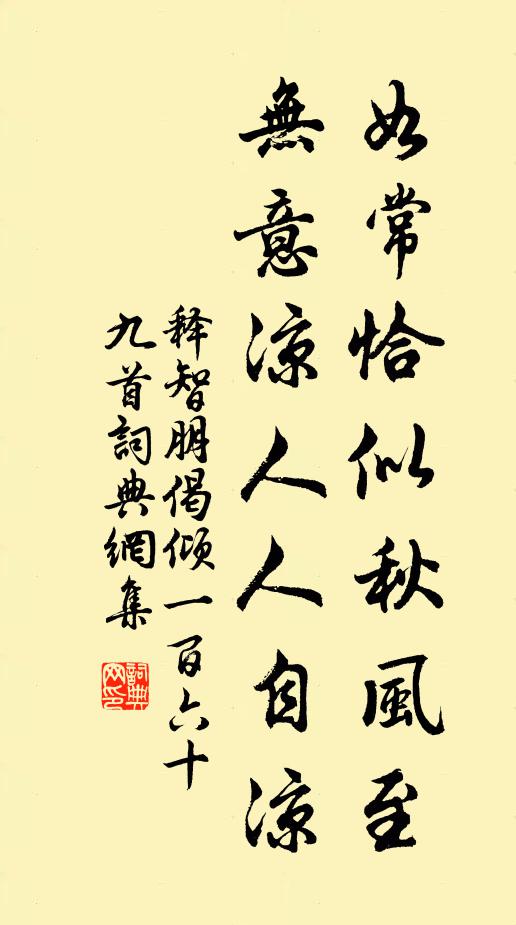 如常恰似秋風至
無意涼人人自涼
释智朋偈倾一百六十
九首詞典網集
詞典網印